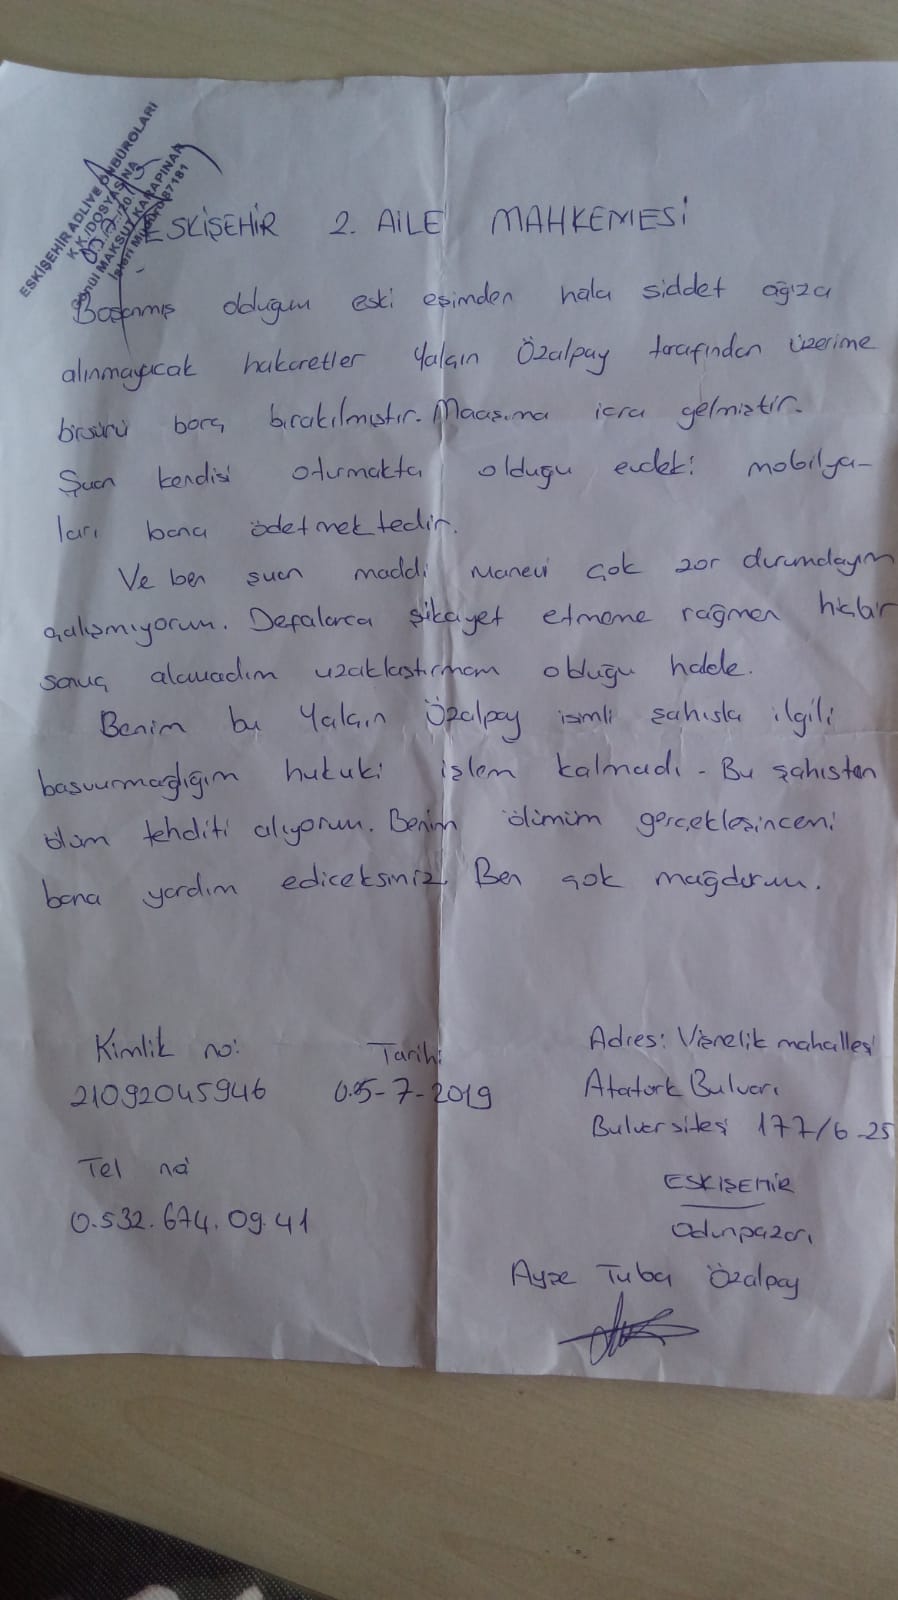 ESKİŞEHİR ADLİYE ÖNBÜROLARI
K.K./DOSYASINA
MAKSUT KARAPINAR
ESKİŞEHİR 2. AİLE MAHKEMESİ
Boşanmış olduğum eski eşimden hala siddet ağıza
alınmayacak hakaretler Yalçın Özalpay tarafından üzerime
birsürü borç bırakılmıştır. Maaşıma icra gelmiştir.
Şuan kendisi oturmakta olduğu evdeki mobilya-
ları bana ödetmektedir.
Ve ben şuan maddi manevi çok zor durumdayım
çalışmıyorum. Defalarca şikayet etmeme rağmen hiçbir
sonuç alamadım uzaklaştırmam olduğu halde.
Benim bu Yalçın Özalpay isimli şahısla ilgili
basvurmadığım hukuki işlem kalmadı. Bu şahıstan
ölüm tehditi alıyorum. Benim ölümüm gerçekleşincemi
bana yardım ediceksiniz. Ben çok mağdurum.
Kimlik no:
21092045946
Tarih:
05-7-2019
Tel no
0.532.674.09.41
Adres: Vişnelik mahallesi
Atatürk Bulvarı
Bulvar sitesi 177/6-25
ESKİŞEHİR
Odunpazarı
Ayşe Tuba Özalpay